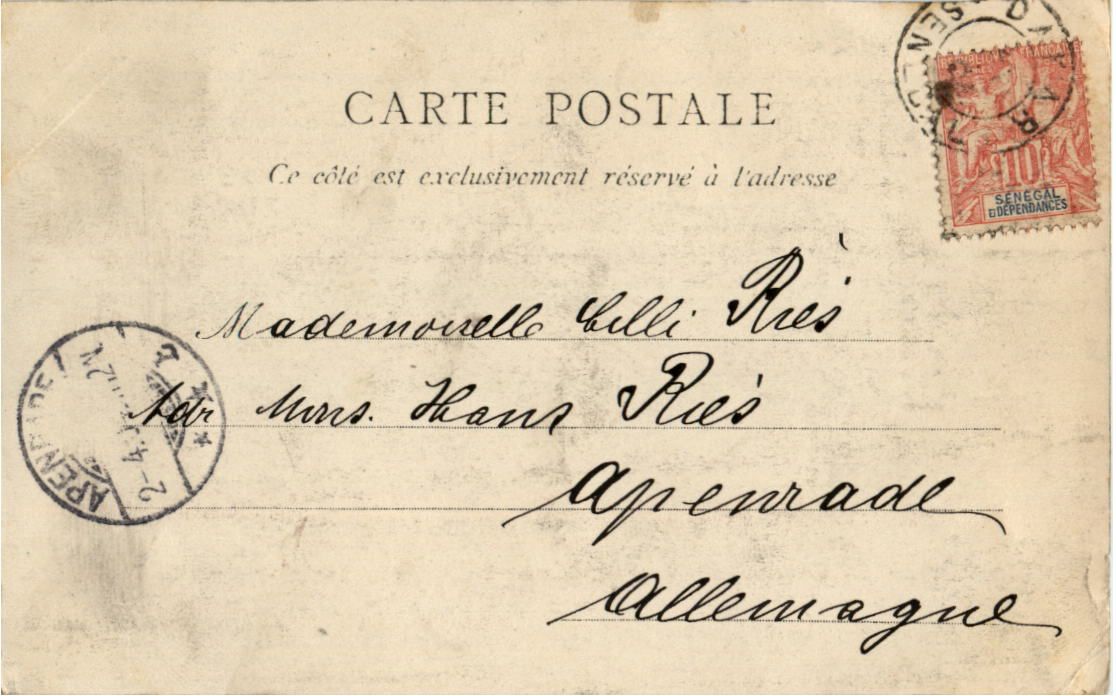 CARTE POSTALE
Ce côté est exclusivement réservé à l'adresse
DAKAR
SÉNÉGAL
RÉPUBLIQUE FRANÇAISE
10
SÉNÉGAL
ET DÉPENDANCES
Mademoiselle Celli Riés
Adr Mons. Hans Riés
Apenrade
Allemagne
APENRADE
2-4